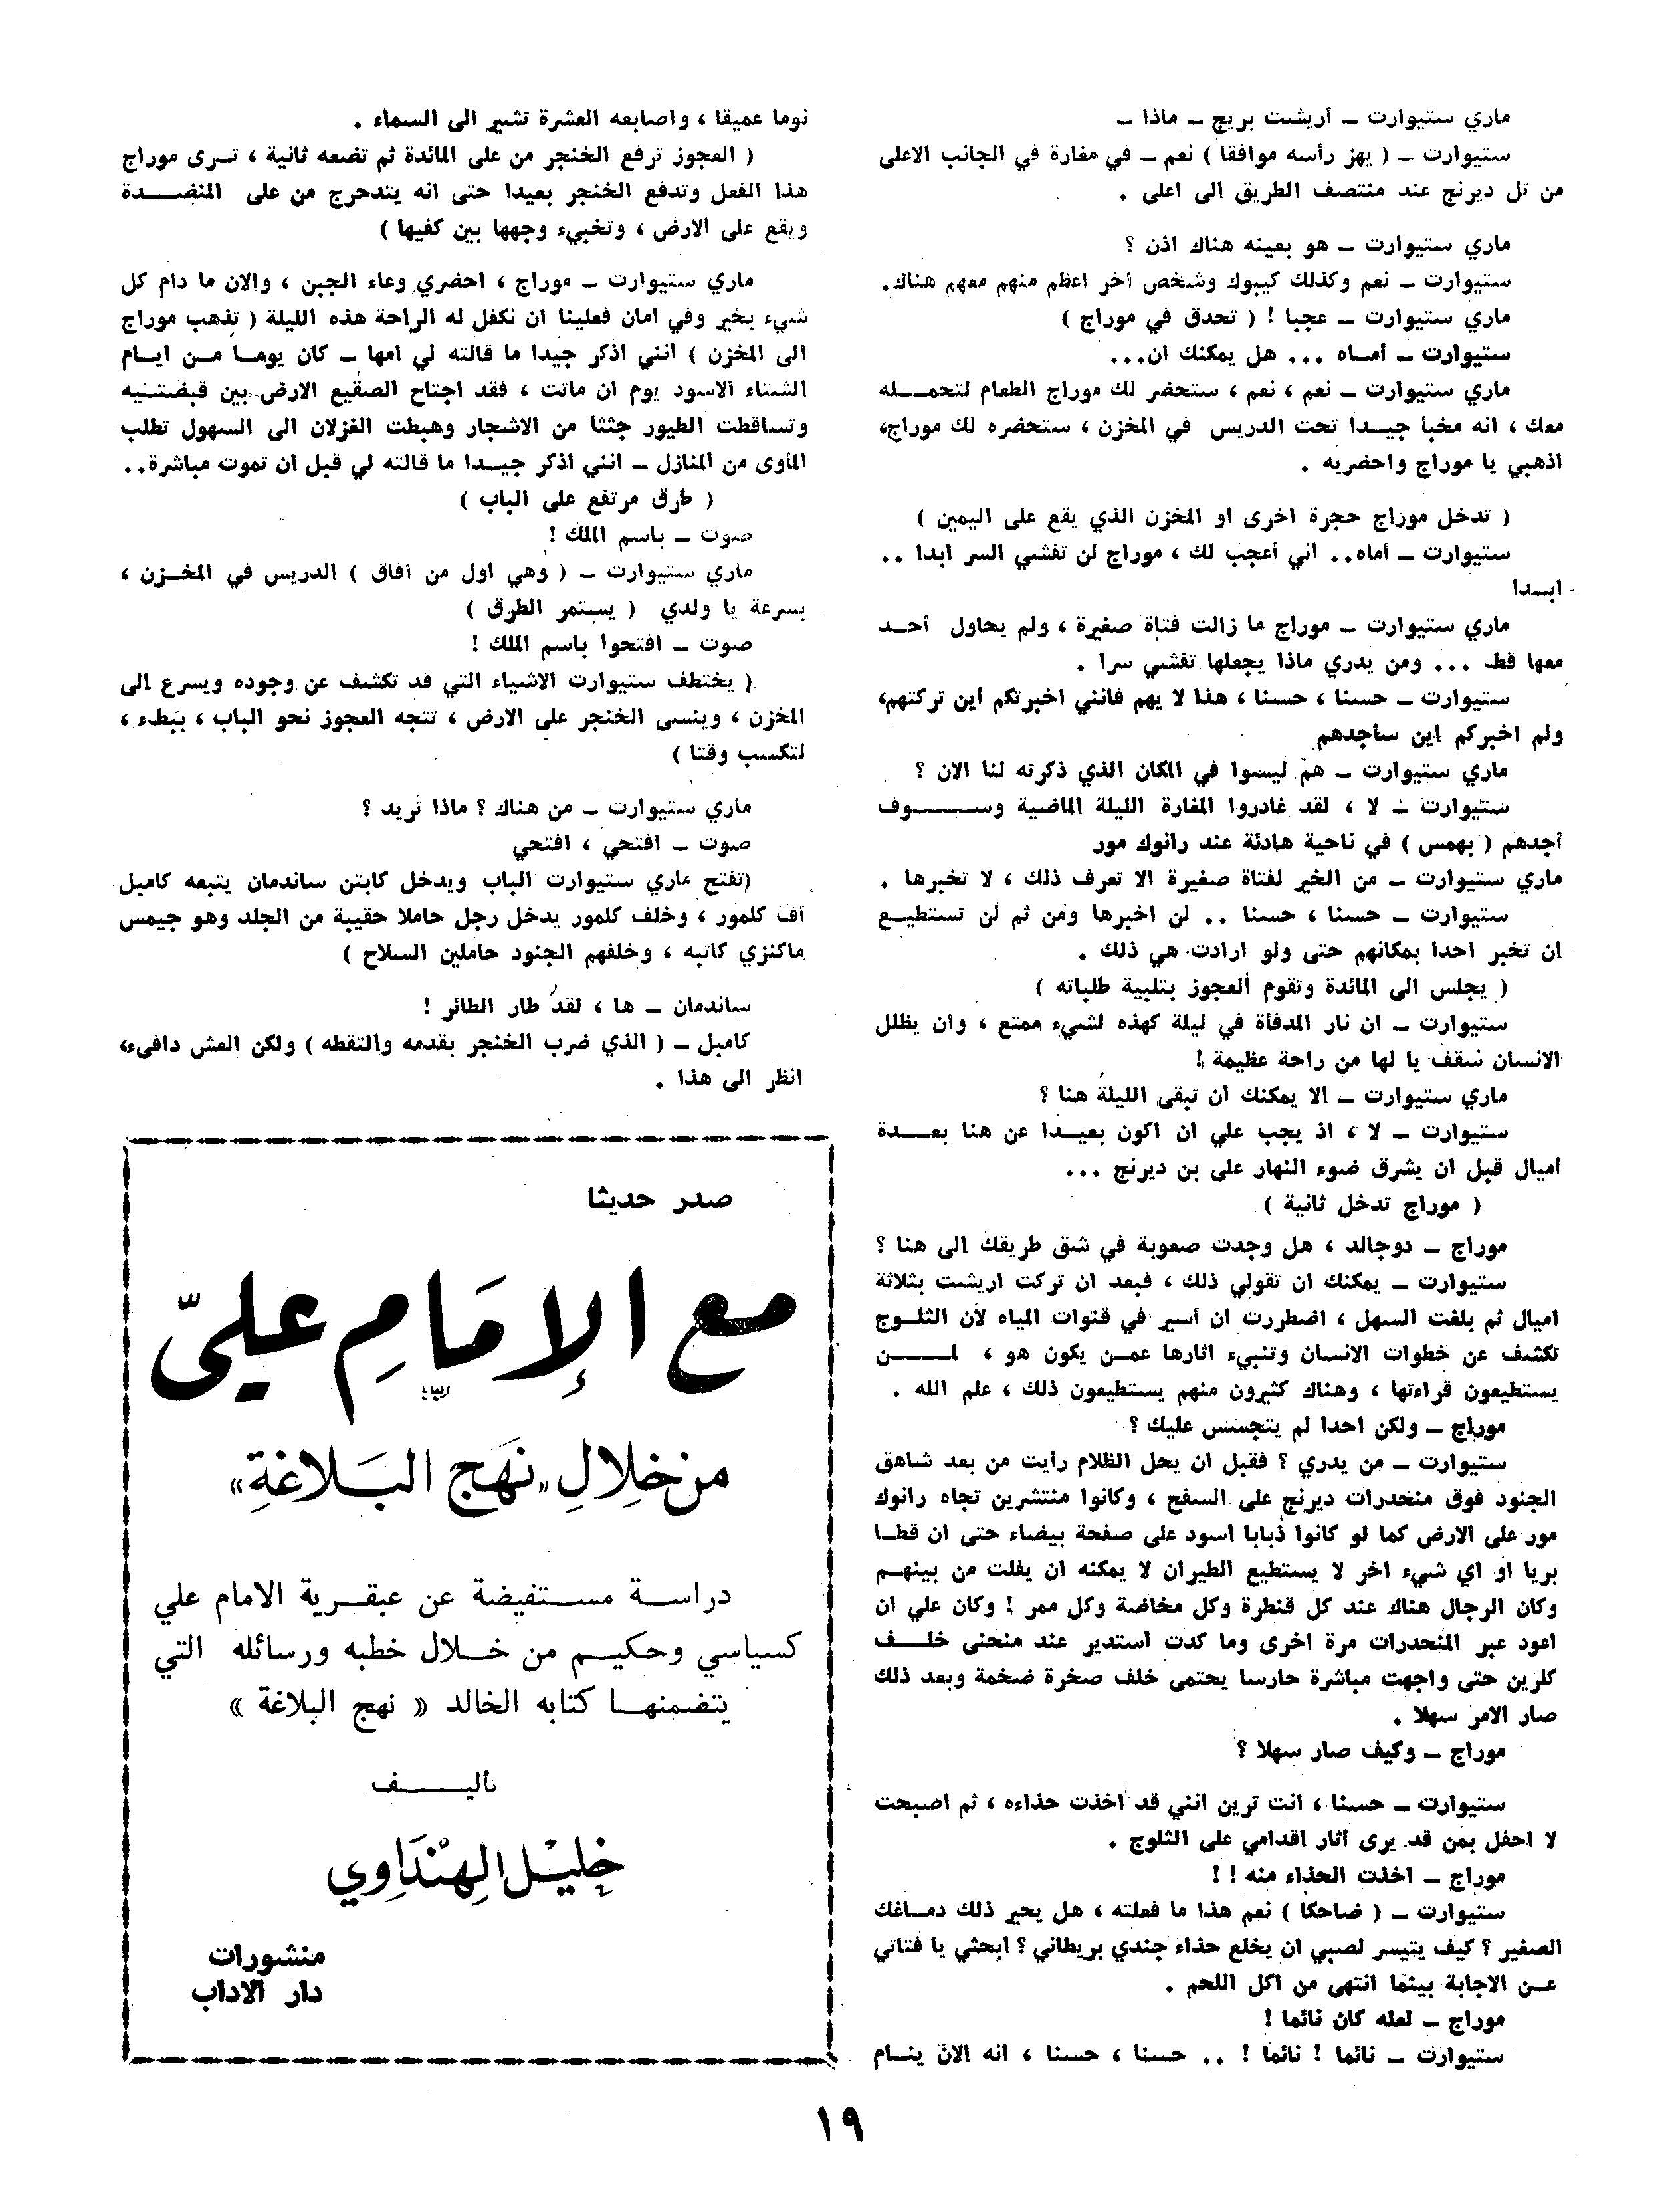 ماري ستيوارت – أريشت بريج – ماذا –
ستيوارت – ( يهز رأسه موافقا ) نعم – في مغارة في الجانب الاعلى
من تل ديرنج عند منتصف الطريق الى اعلى .
ماري ستيوارت – هو بعينه هناك اذن ؟
ستيوارت – نعم وكذلك كيبوك وشخص اخر اعظم منهم معهم هناك.
ماري ستيوارت – عجبا ! ( تحدق في موراج )
ستيوارت – أماه ... هل يمكنك ان...
ماري ستيوارت – نعم ، نعم ، ستحضر لك موراج الطعام لتحمله
معك ، انه مخبأ جيدا تحت الدريس في المخزن ، ستحضره لك موراج،
اذهبي يا موراج واحضريه .
( تدخل موراج حجرة اخرى او المخزن الذي يقع على اليمين )
ستيوارت – أماه.. اني أعجب لك ، موراج لن تفشي السر ابدا ..
ابدا
ماري ستيوارت – موراج ما زالت فتاة صغيرة ، ولم يحاول أحد
معها قط ... ومن يدري ماذا يجعلها تفشي سرا .
ستيوارت – حسنا ، حسنا ، هذا لا يهم فانني اخبرتكم أين تركتهم،
ولم اخبركم اين سأجدهم
ماري ستيوارت – هم ليسوا في المكان الذي ذكرته لنا الان ؟
ستيوارت – لا ، لقد غادروا المغارة الليلة الماضية وسوف
أجدهم ( بهمس ) في ناحية هادئة عند رانوك مور
ماري ستيوارت – من الخير لفتاة صغيرة الا تعرف ذلك ، لا تخبرها .
ستيوارت – حسنا ، حسنا .. لن اخبرها ومن ثم لن تستطيع
ان تخبر احدا بمكانهم حتى ولو ارادت هي ذلك .
( يجلس الى المائدة وتقوم العجوز بتلبية طلباته )
ستيوارت – ان نار المدفأة في ليلة كهذه لشيء ممتع ، وأن يظلل
الانسان سقف يا لها من راحة عظيمة !
ماري ستيوارت – الا يمكنك ان تبقى الليلة هنا ؟
ستيوارت – لا ، اذ يجب علي ان اكون بعيدا عن هنا بعدة
أميال قبل ان يشرق ضوء النهار على بن ديرنج ...
( موراج تدخل ثانية )
موراج – دوجالد ، هل وجدت صعوبة في شق طريقك الى هنا ؟
ستيوارت – يمكنك ان تقولي ذلك ، فبعد ان تركت اريشت بثلاثة
اميال ثم بلغت السهل ، اضطررت ان أسير في قنوات المياه لأن الثلوج
تكشف عن خطوات الانسان وتنبيء اثارها عمن يكون هو ، لمن
يستطيعون قراءتها ، وهناك كثيرون منهم يستطيعون ذلك ، علم الله .
موراج – ولكن احدا لم يتجسس عليك ؟
ستيوارت – من يدري ؟ فقبل ان يحل الظلام رأيت من بعد شاهق
الجنود فوق منحدرات ديرنج على السفح ، وكانوا منتشرين تجاه رانوك
مور على الارض كما لو كانوا ذبابا اسود على صفحة بيضاء حتى ان قطا
بريا أو اي شيء اخر لا يستطيع الطيران لا يمكنه ان يفلت من بينهم
وكان الرجال هناك عند كل قنطرة وكل مخاضة وكل ممر ! وكان علي ان
اعود عبر المنحدرات مرة اخرى وما كدت أستدير عند منحنى خلف
كلرين حتى واجهت مباشرة حارسا يحتمى خلف صخرة ضخمة وبعد ذلك
صار الامر سهلا .
موراج – وكيف صار سهلا ؟
ستيوارت – حسنا ، انت ترين انني قد اخذت حذاءه ، ثم اصبحت
لا احفل بمن قد يرى أثار أقدامي على الثلوج .
موراج – اخذت الحذاء منه ! !
ستيوارت – ( ضاحكا ) نعم هذا ما فعلته ، هل يحير ذلك دماغك
الصغير ؟ كيف يتيسر لصبي ان يخلع حذاء جندي بريطاني ؟ ابحثي يا فتاتي
عن الاجابة بينما انتهى من اكل اللحم .
موراج – لعله كان نائما !
ستيوارت – نائما ! نائما ! .. حسنا ، حسنا ، انه الان ينام
نوما عميقا ، واصابعه العشرة تشير الى السماء .
( العجوز ترفع الخنجر من على المائدة ثم تضعه ثانية ، ترى موراج
هذا الفعل وتدفع الخنجر بعيدا حتى انه يتدحرج من على المنضدة
ويقع على الارض ، وتخبيء وجهها بين كفيها )
ماري ستيوارت – موراج ، احضري وعاء الجبن ، والان ما دام كل
شيء بخير وفي امان فعلينا ان نكفل له الراحة هذه الليلة ( تذهب موراج
الى المخزن ) انني اذكر جيدا ما قالته لي امها – كان يوما من ايام
الشتاء الاسود يوم ان ماتت ، فقد اجتاح الصقيع الارض بين قبضتيه
وتساقطت الطيور جثثا من الاشجار وهبطت الغزلان الى السهول تطلب
المأوى من المنازل – انني اذكر جيدا ما قالته لي قبل ان تموت مباشرة..
( طرق مرتفع على الباب )
صوت – باسم الملك !
ماري ستيوارت – ( وهي اول من أفاق ) الدريس في المخزن ،
بسرعة يا ولدي ( يستمر الطرق )
صوت – افتحوا باسم الملك !
( يختطف ستيوارت الاشياء التي قد تكشف عن وجوده ويسرع الى
المخزن ، وينسى الخنجر على الارض ، تتجه العجوز نحو الباب ، ببطء ،
لتكسب وقتا )
ماري ستيوارت – من هناك ؟ ماذا تريد ؟
صوت – افتحي ، افتحي
(تفتح ماري ستيوارت الباب ويدخل كابتن ساندمان يتبعه كامبل
أف كلمور ، وخلف كلمور يدخل رجل حاملا حقيبة من الجلد وهو جيمس
ماكنزي كاتبه ، وخلفهم الجنود حاملين السلاح )
ساندمان – ها ، لقد طار الطائر !
كامبل – ( الذي ضرب الخنجر بقدمه والتقطه ) ولكن العش دافيء،
انظر الى هذا .
صدر حديثا
مع الإمَامِ عليّ
من خلالِ «نهَج البَلاغةِ»
دراسة مستفيضة عن عبقرية الامام علي
كسياسي وحكيم من خلال خطبه ورسائله التي
يتضمنها كتابه الخالد « نهج البلاغة »
تأليف
خليل الهنداوي
منشورات
دار الاداب
١٩